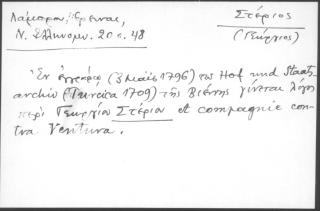 Λάμπρου, Σπυρ.,
Ν. Ελληνομν. 20 σ. 48
Στέριος
(Γεώργιος)
Ἐν ἐγγράφῳ (3 Μαΐου 1796) του Hof und Staats
archiv (Turcica 1709) τῆς Βιέννης γίνεται λόγος
περὶ Γεωργίου Στέριου et compagnie con
tra Ventura.